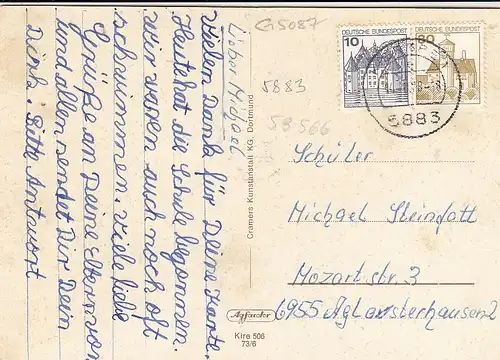 Lieber Michael
Vielen Dank für Deine Karte.
Heute hat die Schule begonnen.
wir waren auch noch oft
schwimmen. Viele liebe
Grüße an Deine Eltern von
und allen sendet Dir Dein
Dirk. Bitte Antwort
G5087
5883
58566
Cramers Kunstanstalt KG, Dortmund
Kire 506
73/6
10 DEUTSCHE BUNDESPOST
DEUTSCHE BUNDESPOST
5883
Schüler
Michael Steinfatt
Mozartstr. 3
6955 Aglasterhausen 2